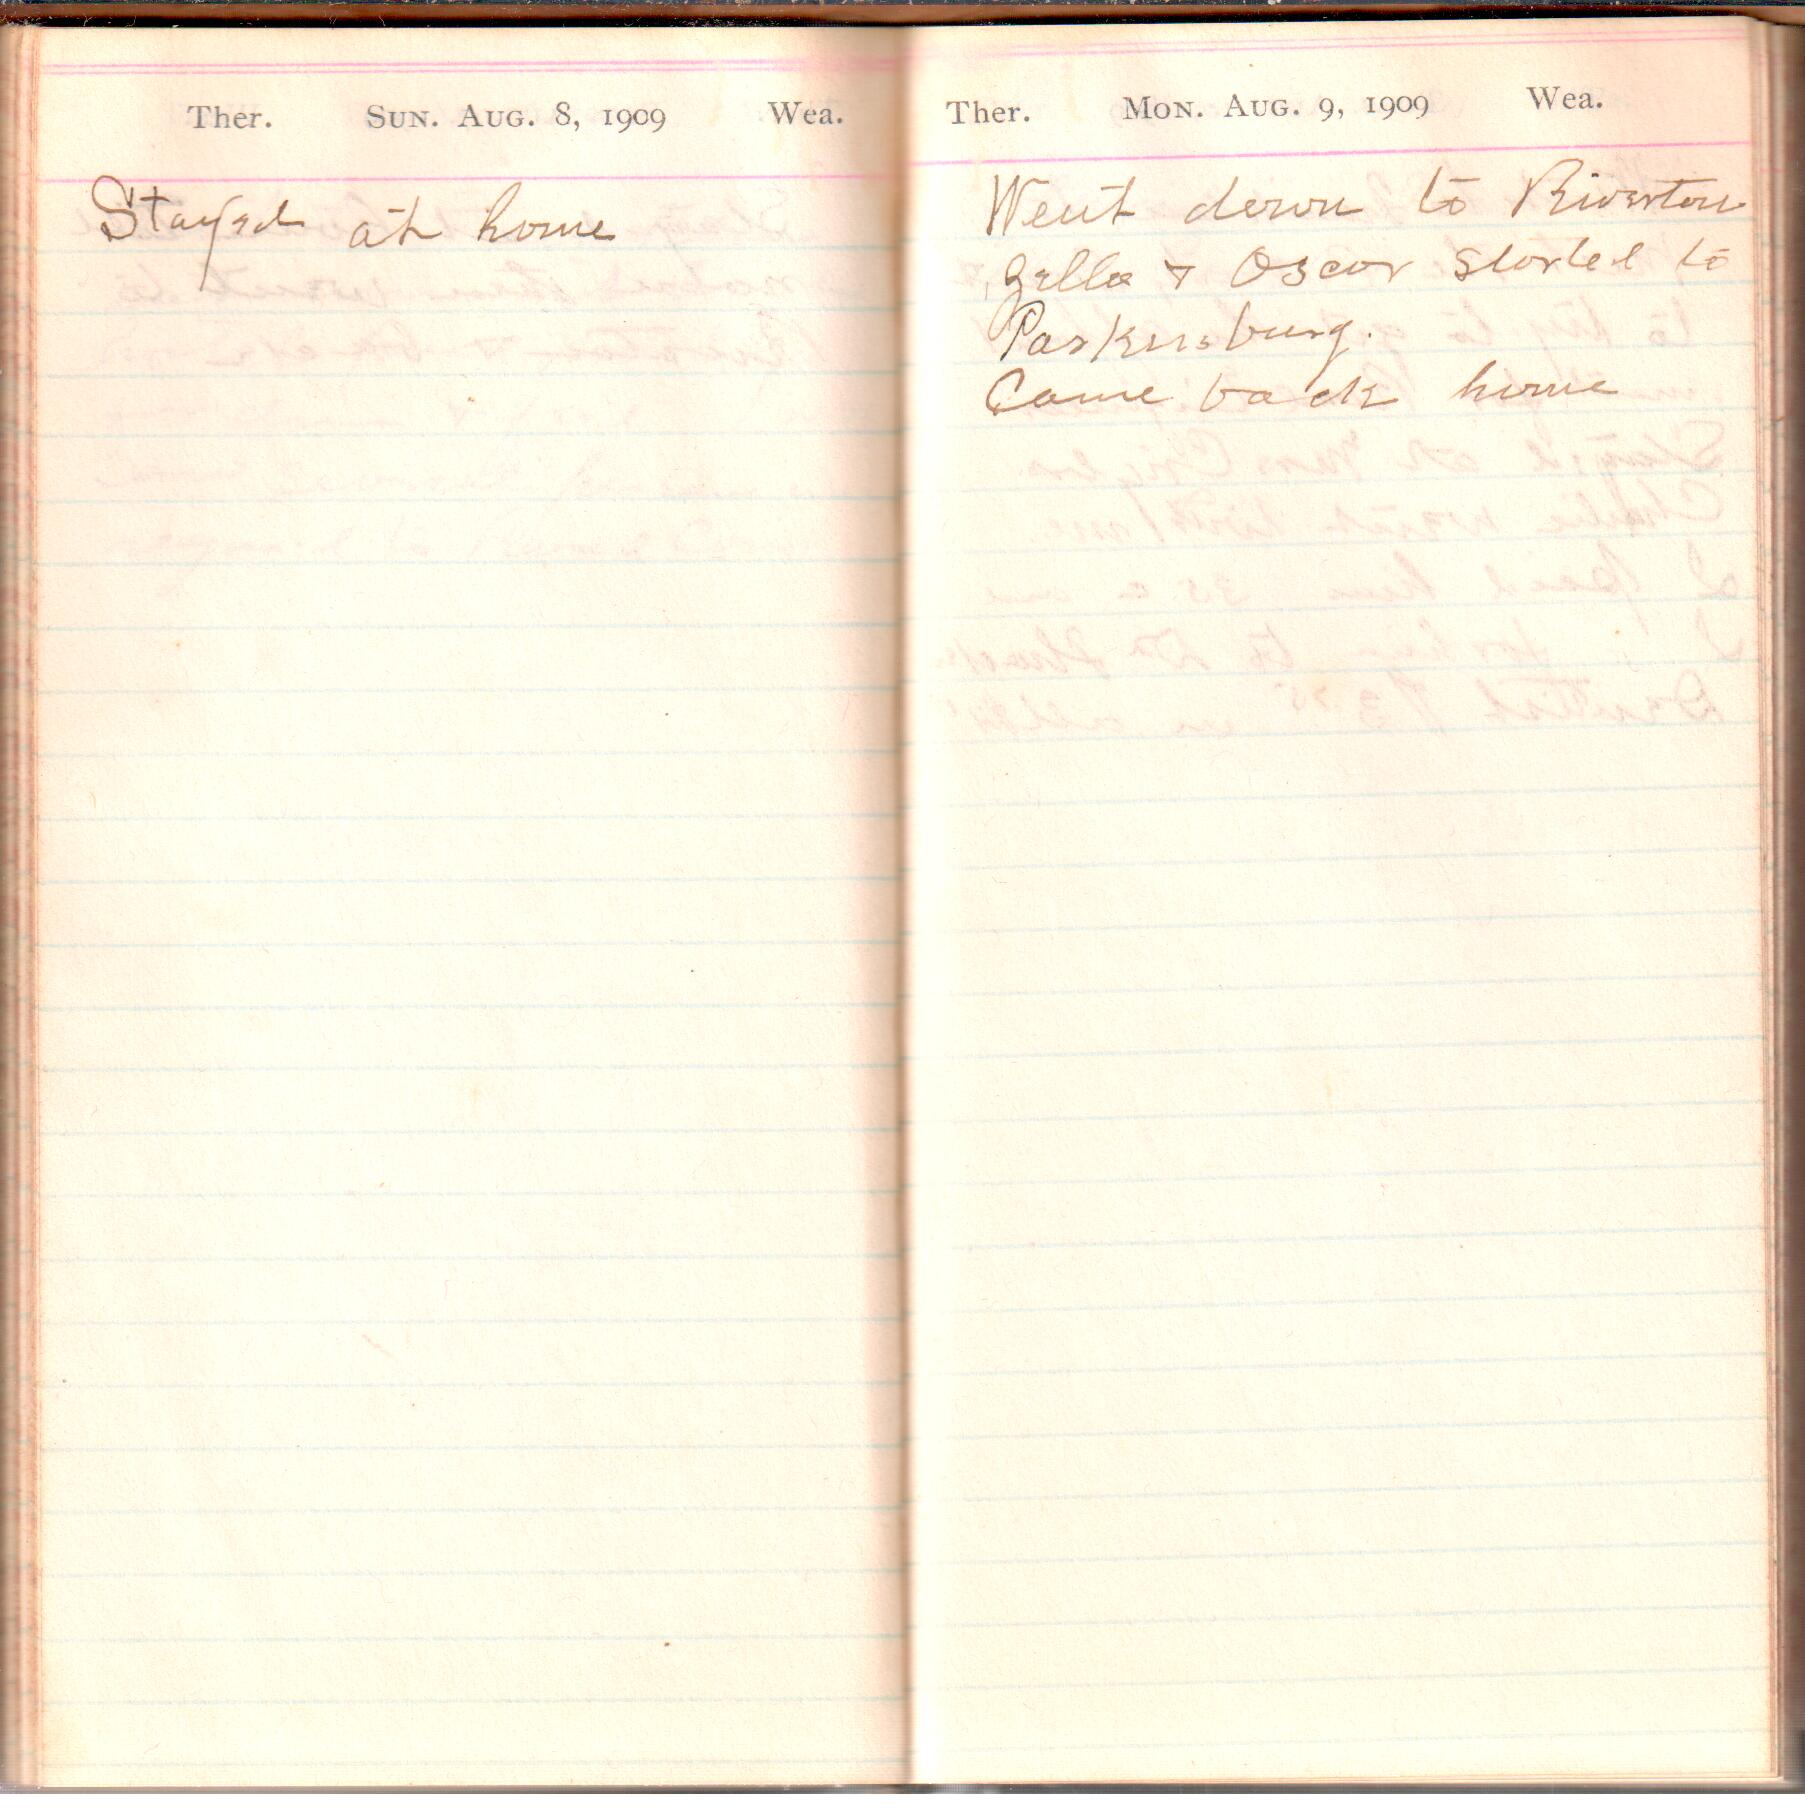 Ther. Sun. Aug. 8, 1909 Wea.
Stayed at home
Ther. Mon. Aug. 9, 1909 Wea.
Went down to Riverton
Zella & Oscar started to
Parkersburg.
Came back home